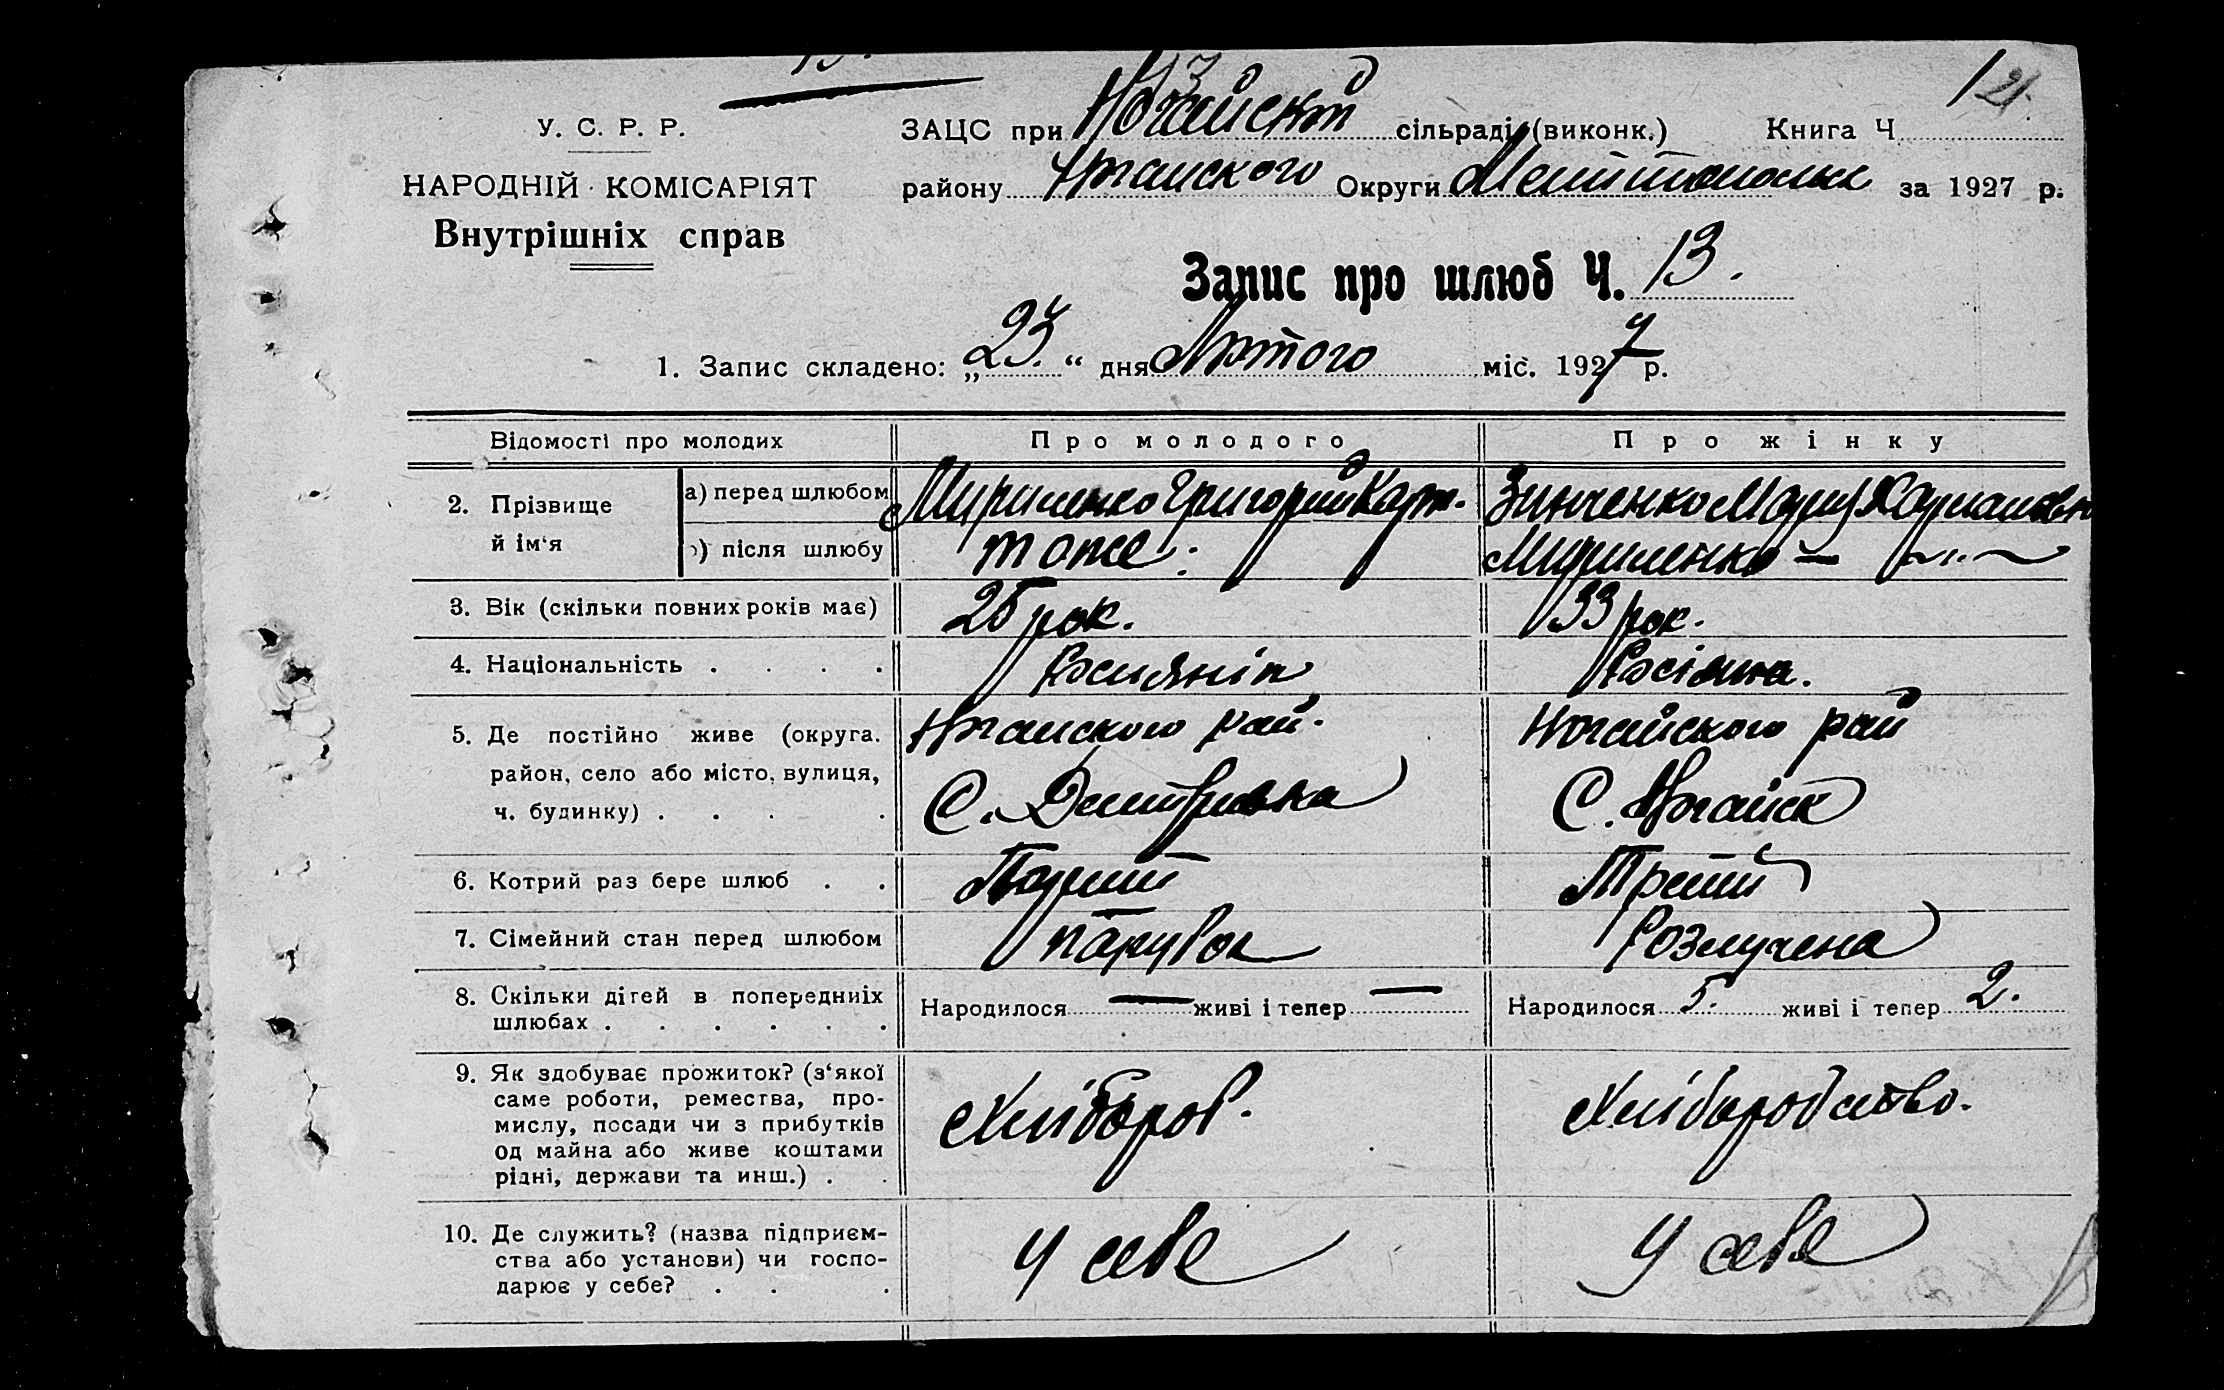 У. С. Р. Р.
НАРОДНІЙ КОМІСАРІЯТ
Внутрішніх справ
ЗАЦС при Ногайскій сільраді (виконк.) Книга Ч
району Ногайского Округи за 1927 р.
Запис про шлюб Ч. 13.
1. Запис складено: „23.“ дня Лютого міс. 1927 р.
Відомості про молодих Про молодого Про жінку
2. Прізвище й ім‘я
а) перед шлюбом Григорий Зинченко
) після шлюбу тоже
3. Вік (скільки повних років має) 25 рок. 33 рок.
4. Національність . . . . Росиянін Росіянка.
5. Де постійно живе (округа. Ногайского рай. Ногайского рай
район, село або місто, вулиця, С. Дмитривка С. Ногайск
ч. будинку) . . . .
6. Котрий раз бере шлюб . . Третий
7. Сімейний стан перед шлюбом парубок Розлучена
8. Скільки дітей в попередниіх Народилося — живі і тепер — Народилося 5. живі і тепер 2.
шлюбах . . . . . .
9. Як здобуває прожиток? (з‘якої
саме роботи, ремества, про-
мислу, посади чи з прибутків Хлібороб. Хліборобство.
од майна або живе коштами
рідні, держави та инш.) . .
10. Де служить? (назва підприєм-
ства або установи) чи госпо- У себе У себе
дарює у себе? . . .